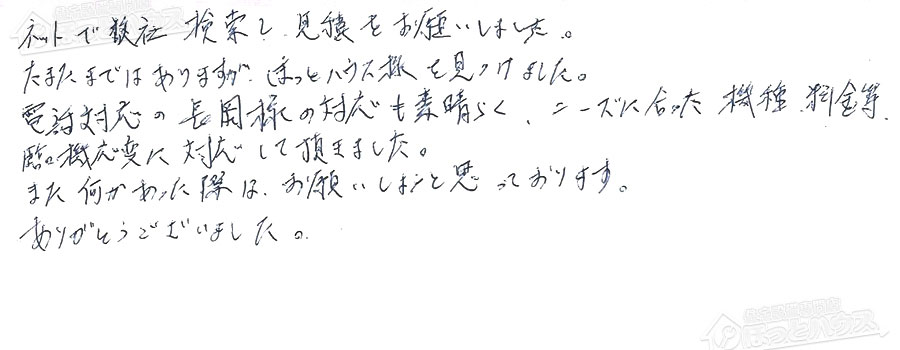 ネットで数社 検索し、見積をお願いしました。
たまたまではありますが、ほっとハウス様を見つけました。
電話対応の長岡様の対応も素晴らく、ニーズに合った機種、料金等、
臨機応変に対応して頂きました。
また何かあった際は、お願いしようと思っております。
ありがとうございました。
住宅設備専門店
ほっとハウス